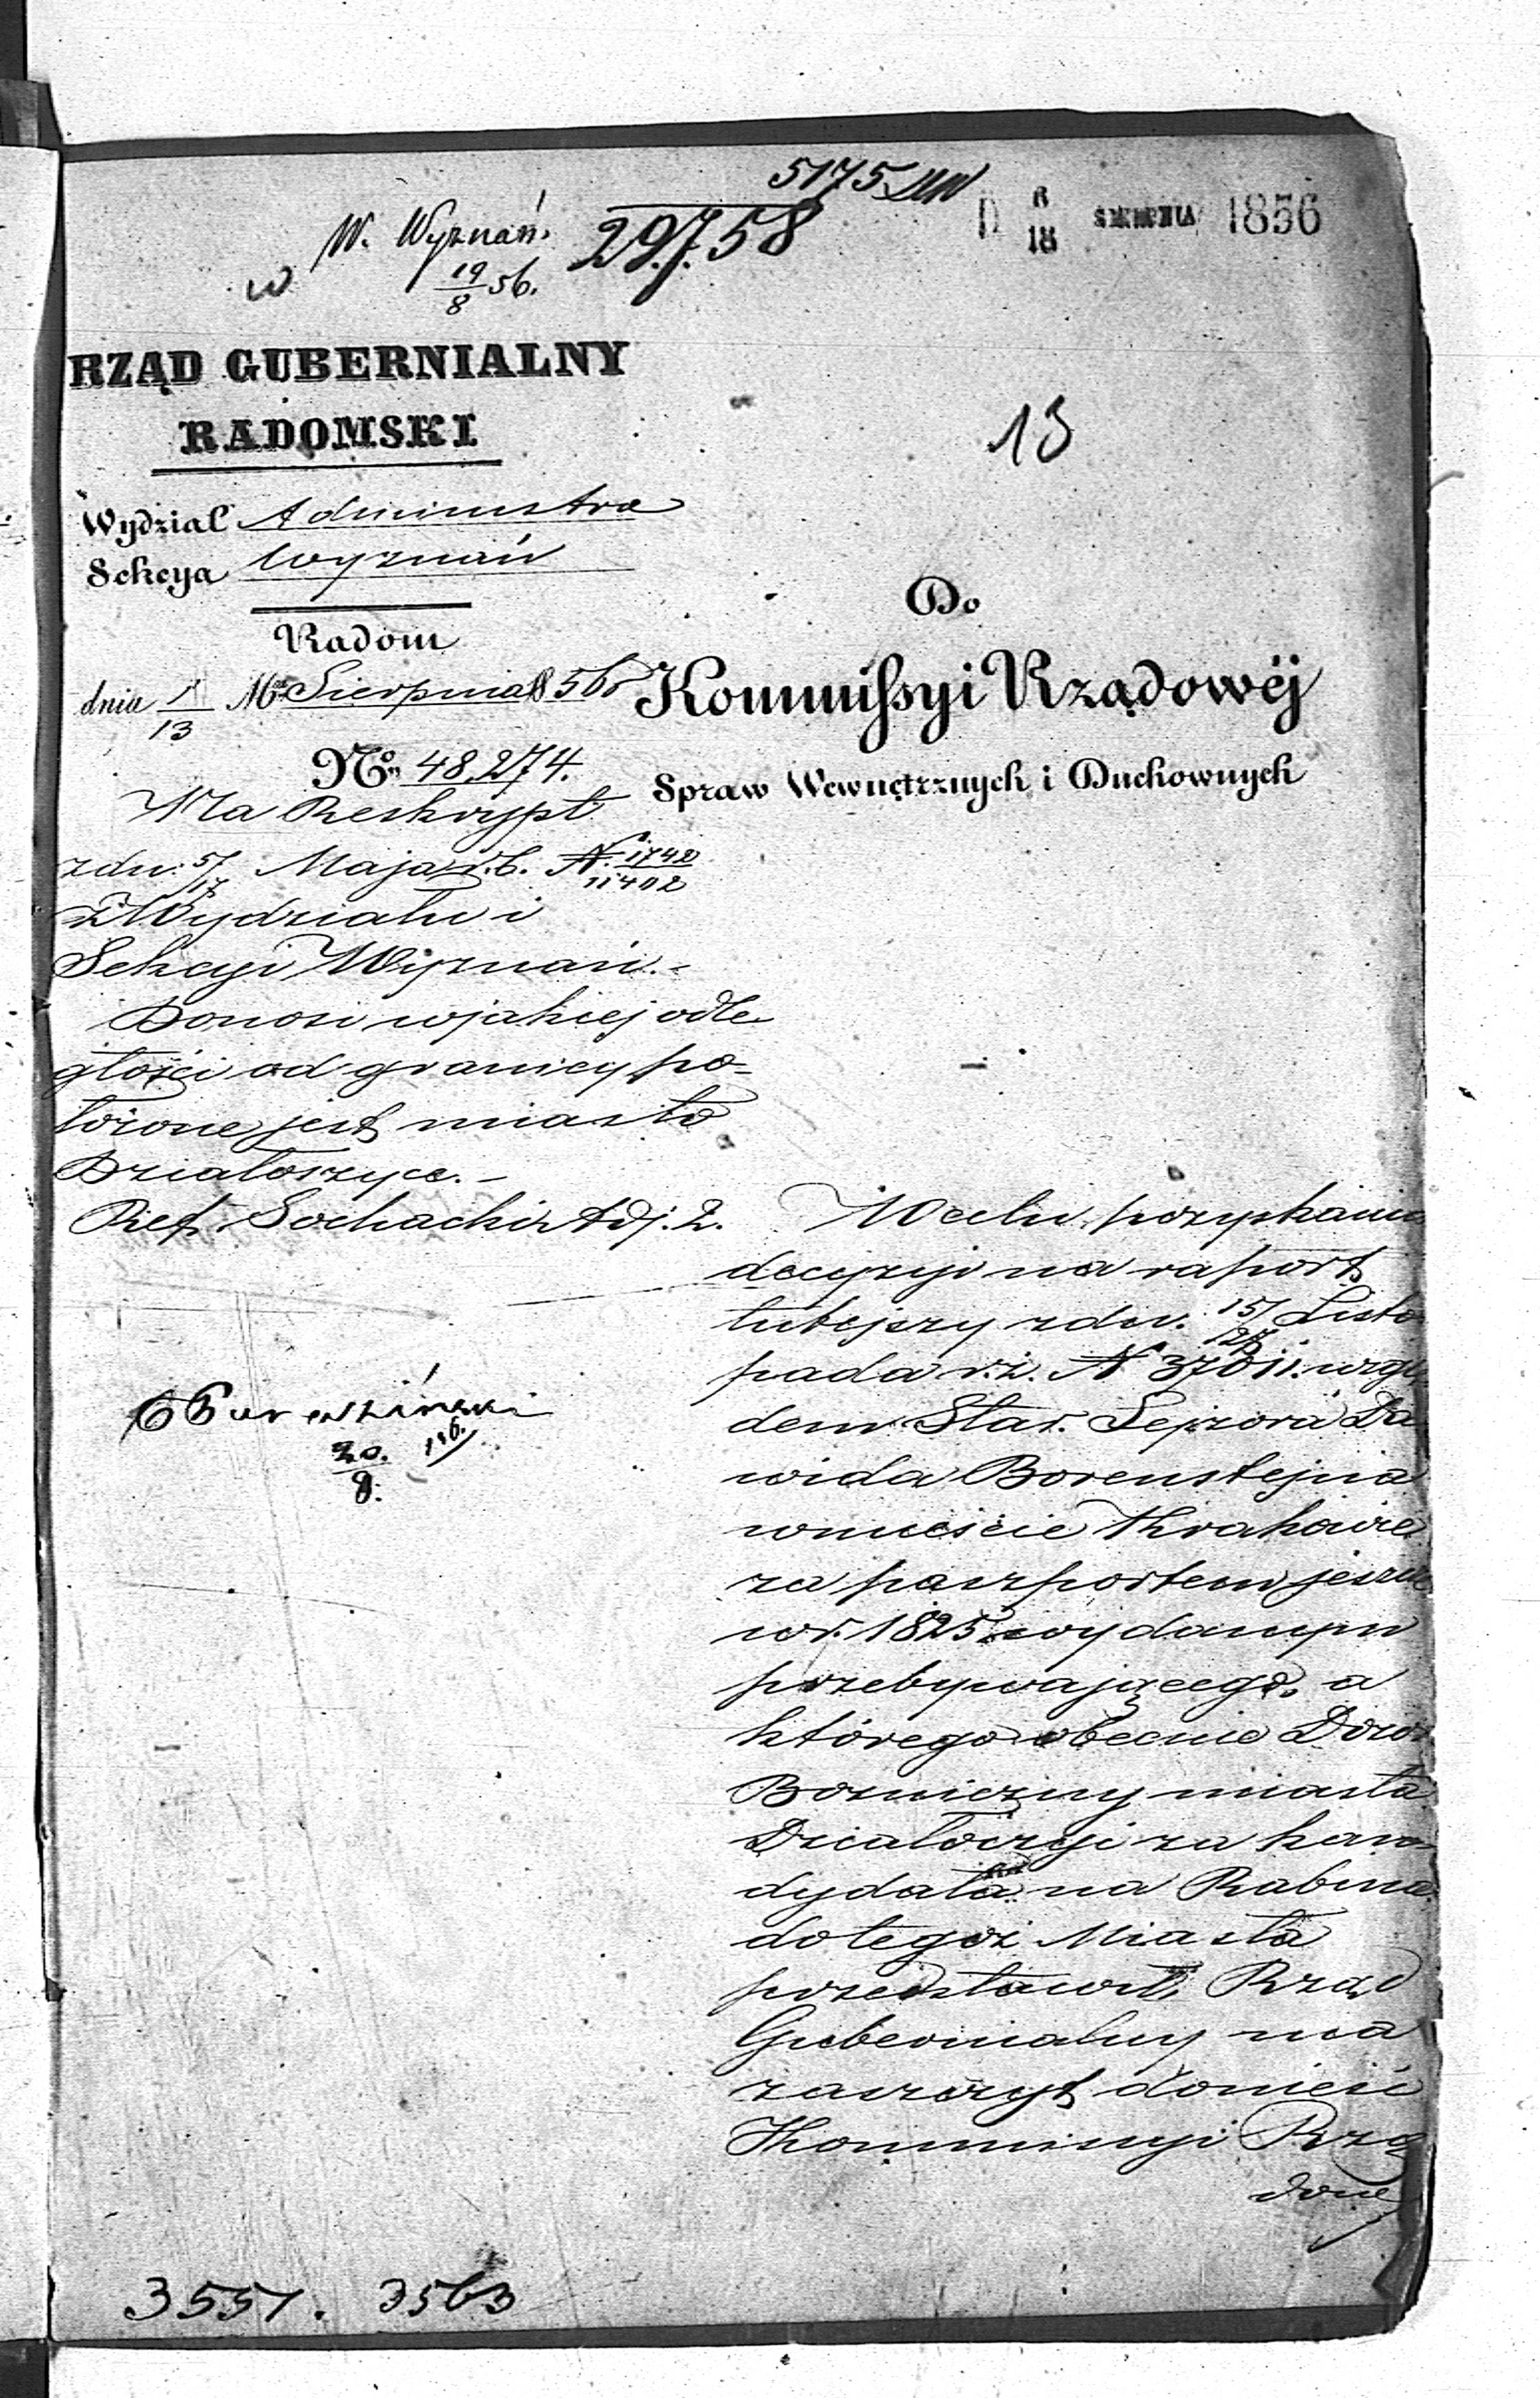 5175
W. Wyznań.
29758
D 6/18 SIERPNIA 1856
w
19/8 56.
RZĄD GUBERNIALNY
RADOMSKI
13
Wydział Administra
Sekcya Wyznań
Radom
dnia 1/13 Mca Sierpnia 1856
No 48,274.
Do
Kommissyi Rządowéj
Spraw Wewnętrznych i Duchownych
Na Reskrypt
z dn. 5/17 Maja r.b. N. 1742/11402
z Wydziału i
Sekcyi Wyznań.-
Donosi w jakiej odle
głości od granicy po-
łożone jest miasto
Działoszyce.-
Ref. Sochacki Adj. 2.
W celu pozyskania
decyzyi na raport
tutejszy z dn. 15/27 Listo
pada r.z. N 37011. wzglę
dem Star. Lejzora Da
wida Borensztejna
w mieście Krakowie
za paszportem jeszcze
w r. 1825 wydanym
przebywającego, a
którego obecnie Dozór
Bożniczny miasta
Działoszyc za kan-
dydata na Rabina
do tegoż Miasta
przedstawił, Rząd
Gubernialny ma
zaszczyt donieść
Kommissyi Rzą
dowej
20./8.
3551. 3563